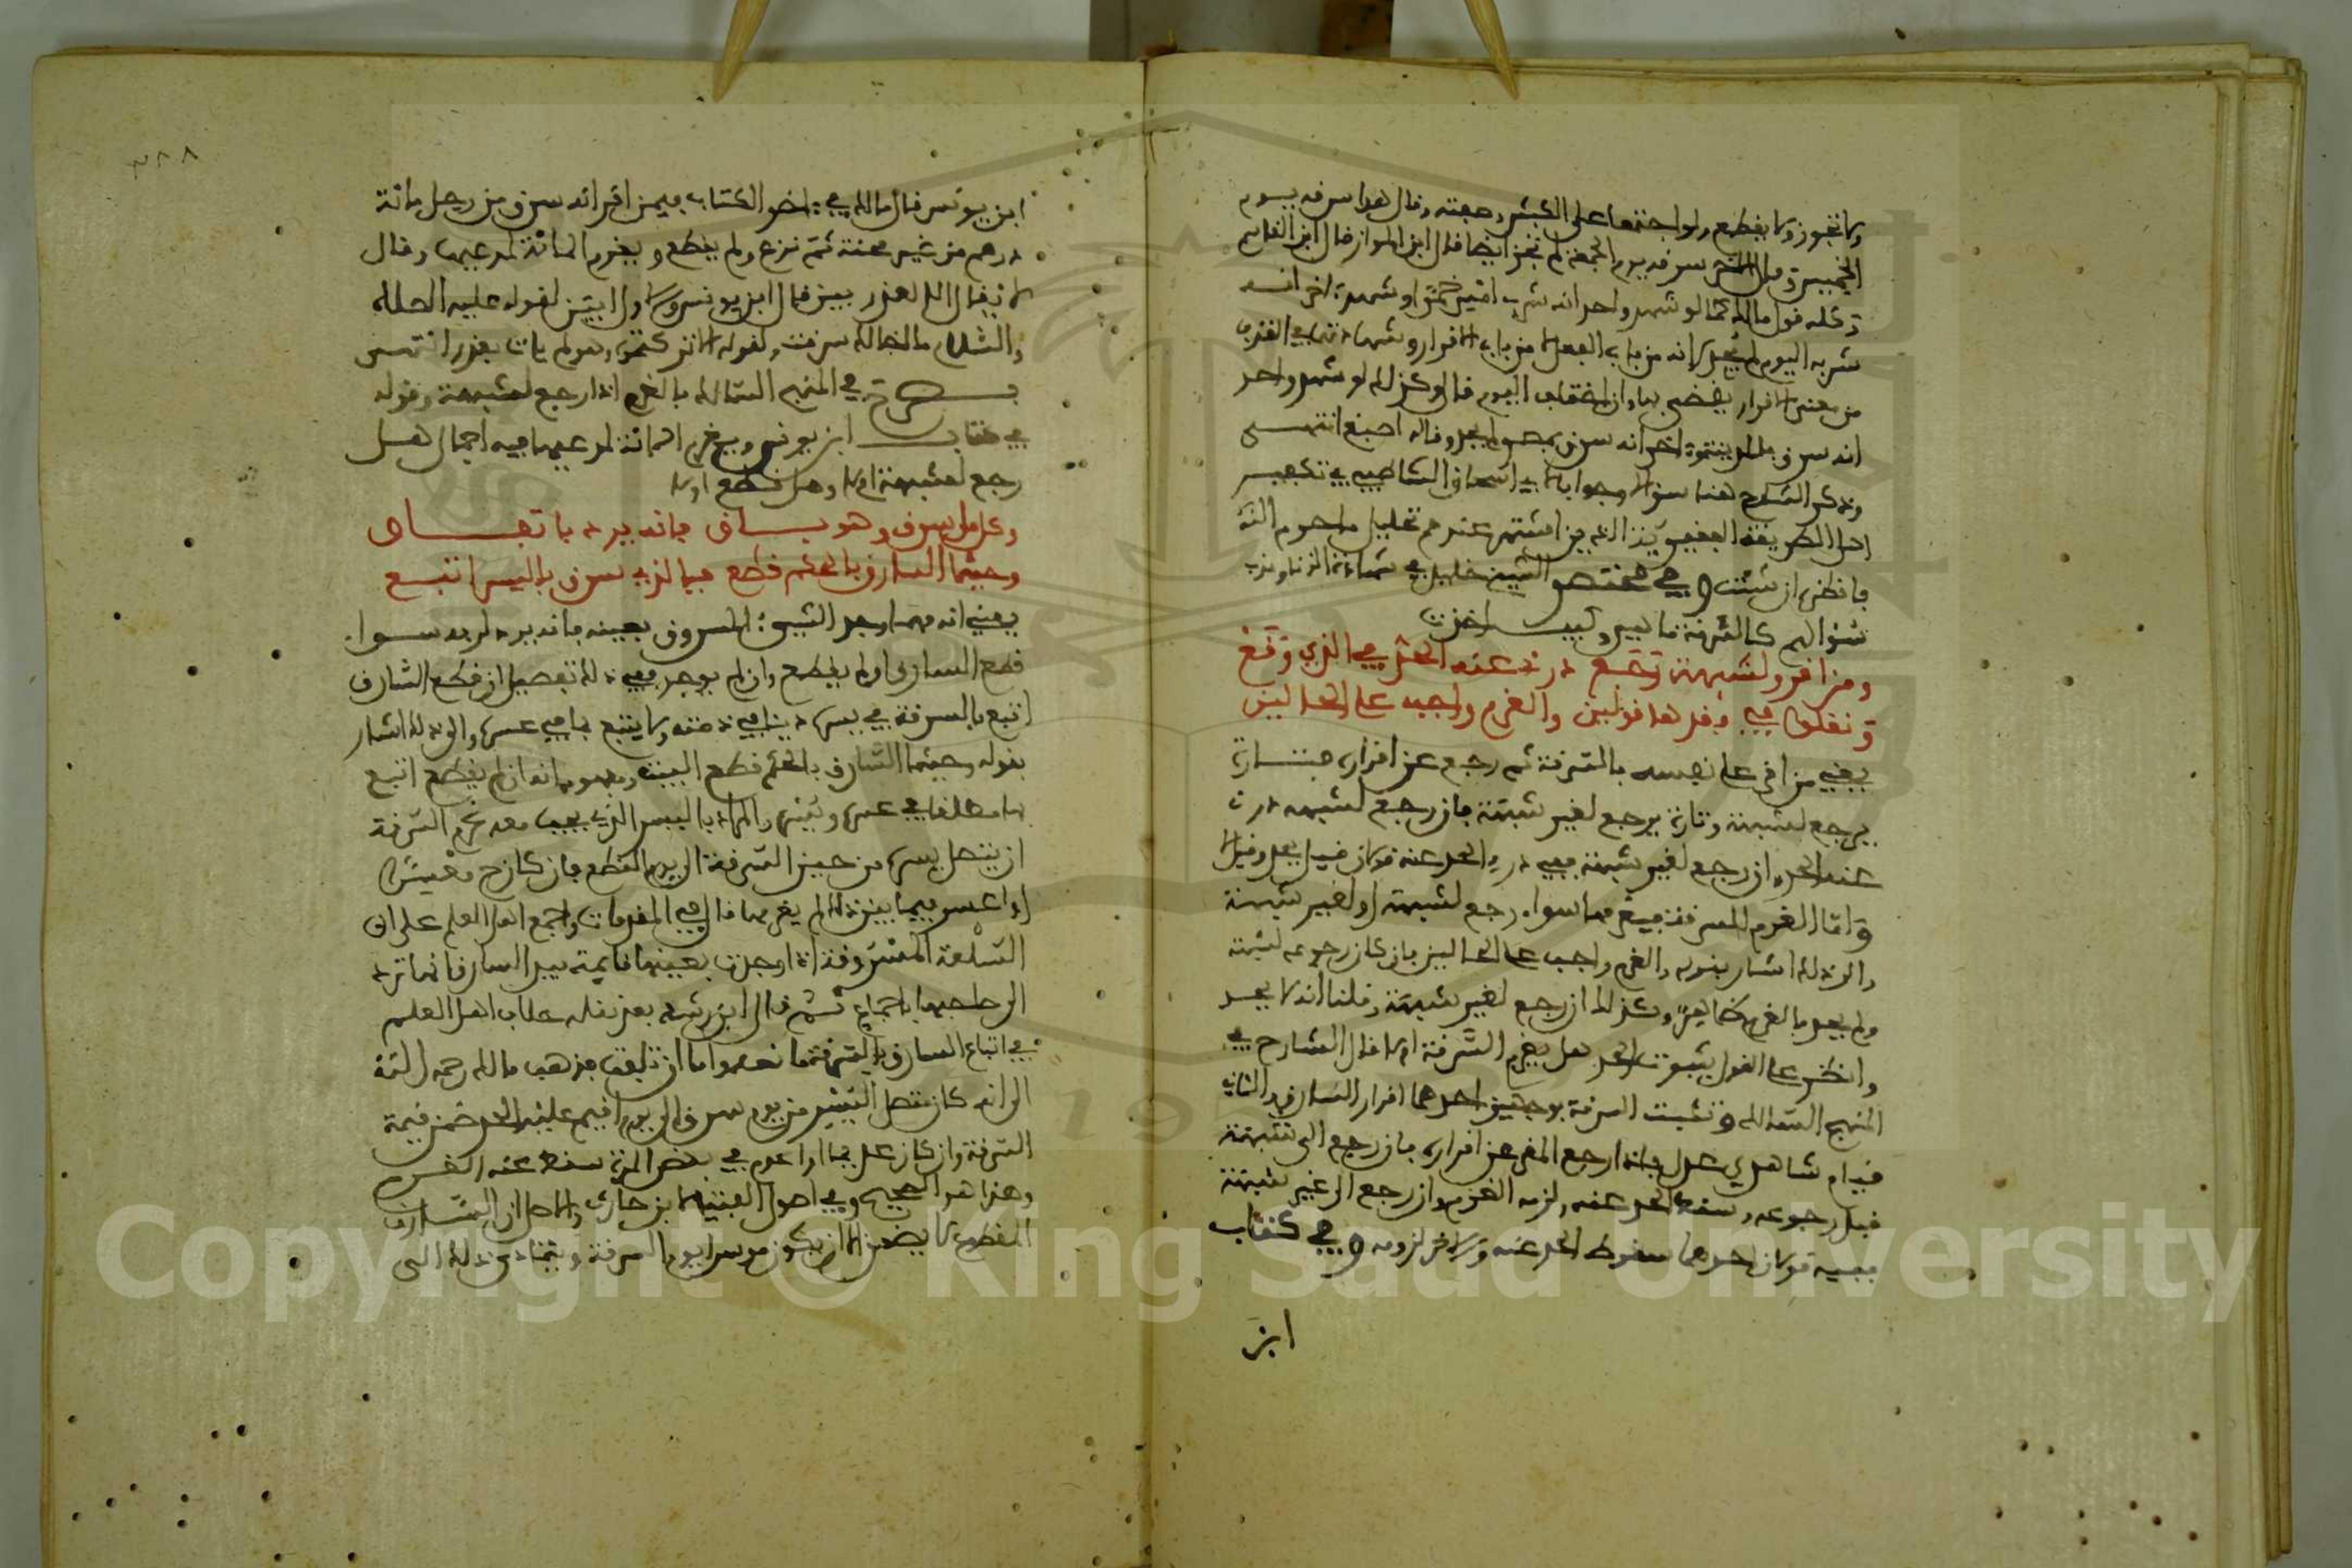 ولا تجوز ولا يقطع ولو اجتمعا على الكبش وصفته وقال هذا سرقه يوم
الخميس وقال الاخر سرقه يوم الجمعة لم تجز ايضا قال ابن المواز قال ابن القاسم
وكله قول مالك كما لو شهد واحد انه شرب امس خمرا وشهد اخر انه
شربه اليوم لم يحد لانه من باب الفعل لا من باب الاقرار وشهادتهما في القذف
من معنى الاقرار يقضى بها وان اختلف اليوم قال وكذلك لو شهد واحد
انه سرق بالمدينة واخر انه سرق بمصر لم يحد وقاله اصبغ انتهى
وذكر الشارح هنا سؤالا وجوابا لابي اسحاق الشاطبي في تكفير
اهل الطريقة الفقيرية الذين اشتهر عندهم تحليل ما حرم الله
فانظره ان شئت وفي مختصر الشيخ خليل في شهادة الزنا وندب
سؤالهم كالسرقة ما هي وكيف اخذت
ومن اقر ولشبهة رجع درئ عنه الحد في الذي وقع
ونقلوا في فقدها قولين والغرم واجب على الحالين
يعني من اقر على نفسه بالسرقة ثم رجع عن اقراره فتارة
يرجع لشبهة وتارة يرجع لغير شبهة فان رجع لشبهة درئ
عنه الحد وان رجع لغير شبهة ففي درء الحد عنه قولان قيل يحد وقيل لا
واما الغرم للسرقة فيغرمها سواء رجع لشبهة او لغير شبهة
والى ذلك اشار بقوله والغرم واجب على الحالين فان كان رجوعه لشبهة
ولم يحد فالغرم كما هو وكذلك ان رجع لغير شبهة وقلنا انه لا يحد
وانظر على القول بثبوت الحد هل يغرم السرقة او لا قال الشارح في
المنهج السالك وتثبت السرقة بوجهين احدهما اقرار السارق والثاني
قيام شاهدي عدل فاذا رجع المقر عن اقراره فان رجع الى شبهة
قبل رجوعه وسقط الحد عنه ولزمه الغرم وان رجع الى غير شبهة
ففيه قولان احدهما سقوط الحد عنه والاخر لزومه وفي كتاب
ابن
٣٨٨
ابن يونس قال مالك في اخر الكتاب فيمن اقر انه سرق من رجل مائة
درهم من غير محنة ثم نزع ولم يقطع ويغرم المائة لمدعيها وقال
لا يقال الا لعذر بين قال ابن يونس والاول ابين لقوله عليه الصلاة
والسلام ما اخالك سرقت ولقوله الا تركتموه ولم يات بعذر انتهى
في المنهج السالك بالغرم اذا رجع لشبهة وقوله
في كتاب ابن يونس ويغرم المائة لمدعيها فيه اجمال هل
رجع لشبهة او لا وهل قطع او لا
وكل ما سرق وهو باق فانه يرد باتفاق
وحيثما السارق بالحكم قطع فبالذي سرق باليسر اتبع
يعني انه مهما وجد الشيء المسروق بعينه فانه يرد لربه سواء
قطع السارق او لم يقطع وان لم يوجد ففي ذلك تفصيل ان قطع السارق
اتبع بالسرقة في يسره دينا في ذمته ولا يتبع بها في عسره والى ذلك اشار
بقوله وحيثما السارق بالحكم قطع البيت ومفهومه انه ان لم يقطع اتبع
بها مطلقا في عسره ويسره والمراد باليسر الذي يجب معه غرم السرقة
ان يتصل يسره من حين السرقة الى يوم القطع فان كان معسرا
او اعسر فيما بين ذلك لم يغرمها قال في المقدمات واجمع اهل العلم على ان
السلعة المسروقة اذا وجدت بعينها قايمة بيد السارق انها ترد
الى صاحبها باجماع ثم قال ابن رشد بعد نقله خلاف اهل العلم
في اتباع السارق بالسرقة ما نصه واما ان تلفت فذهب مالك رحمه الله
الى انه كان متصل اليسر من يوم سرق الى يوم اقيم عليه الحد ضمن قيمة
السرقة وان كان عديما او اعدم في بعض المدة سقط عنه الغرم
وهذا هو الصحيح وفي اصول الفتيا لابن حارث والاصل ان السارق
المقطوع لا يضمن الا ان يكون موسرا يوم السرقة ويتمادى ذلك الى
Copyright © King Saud University